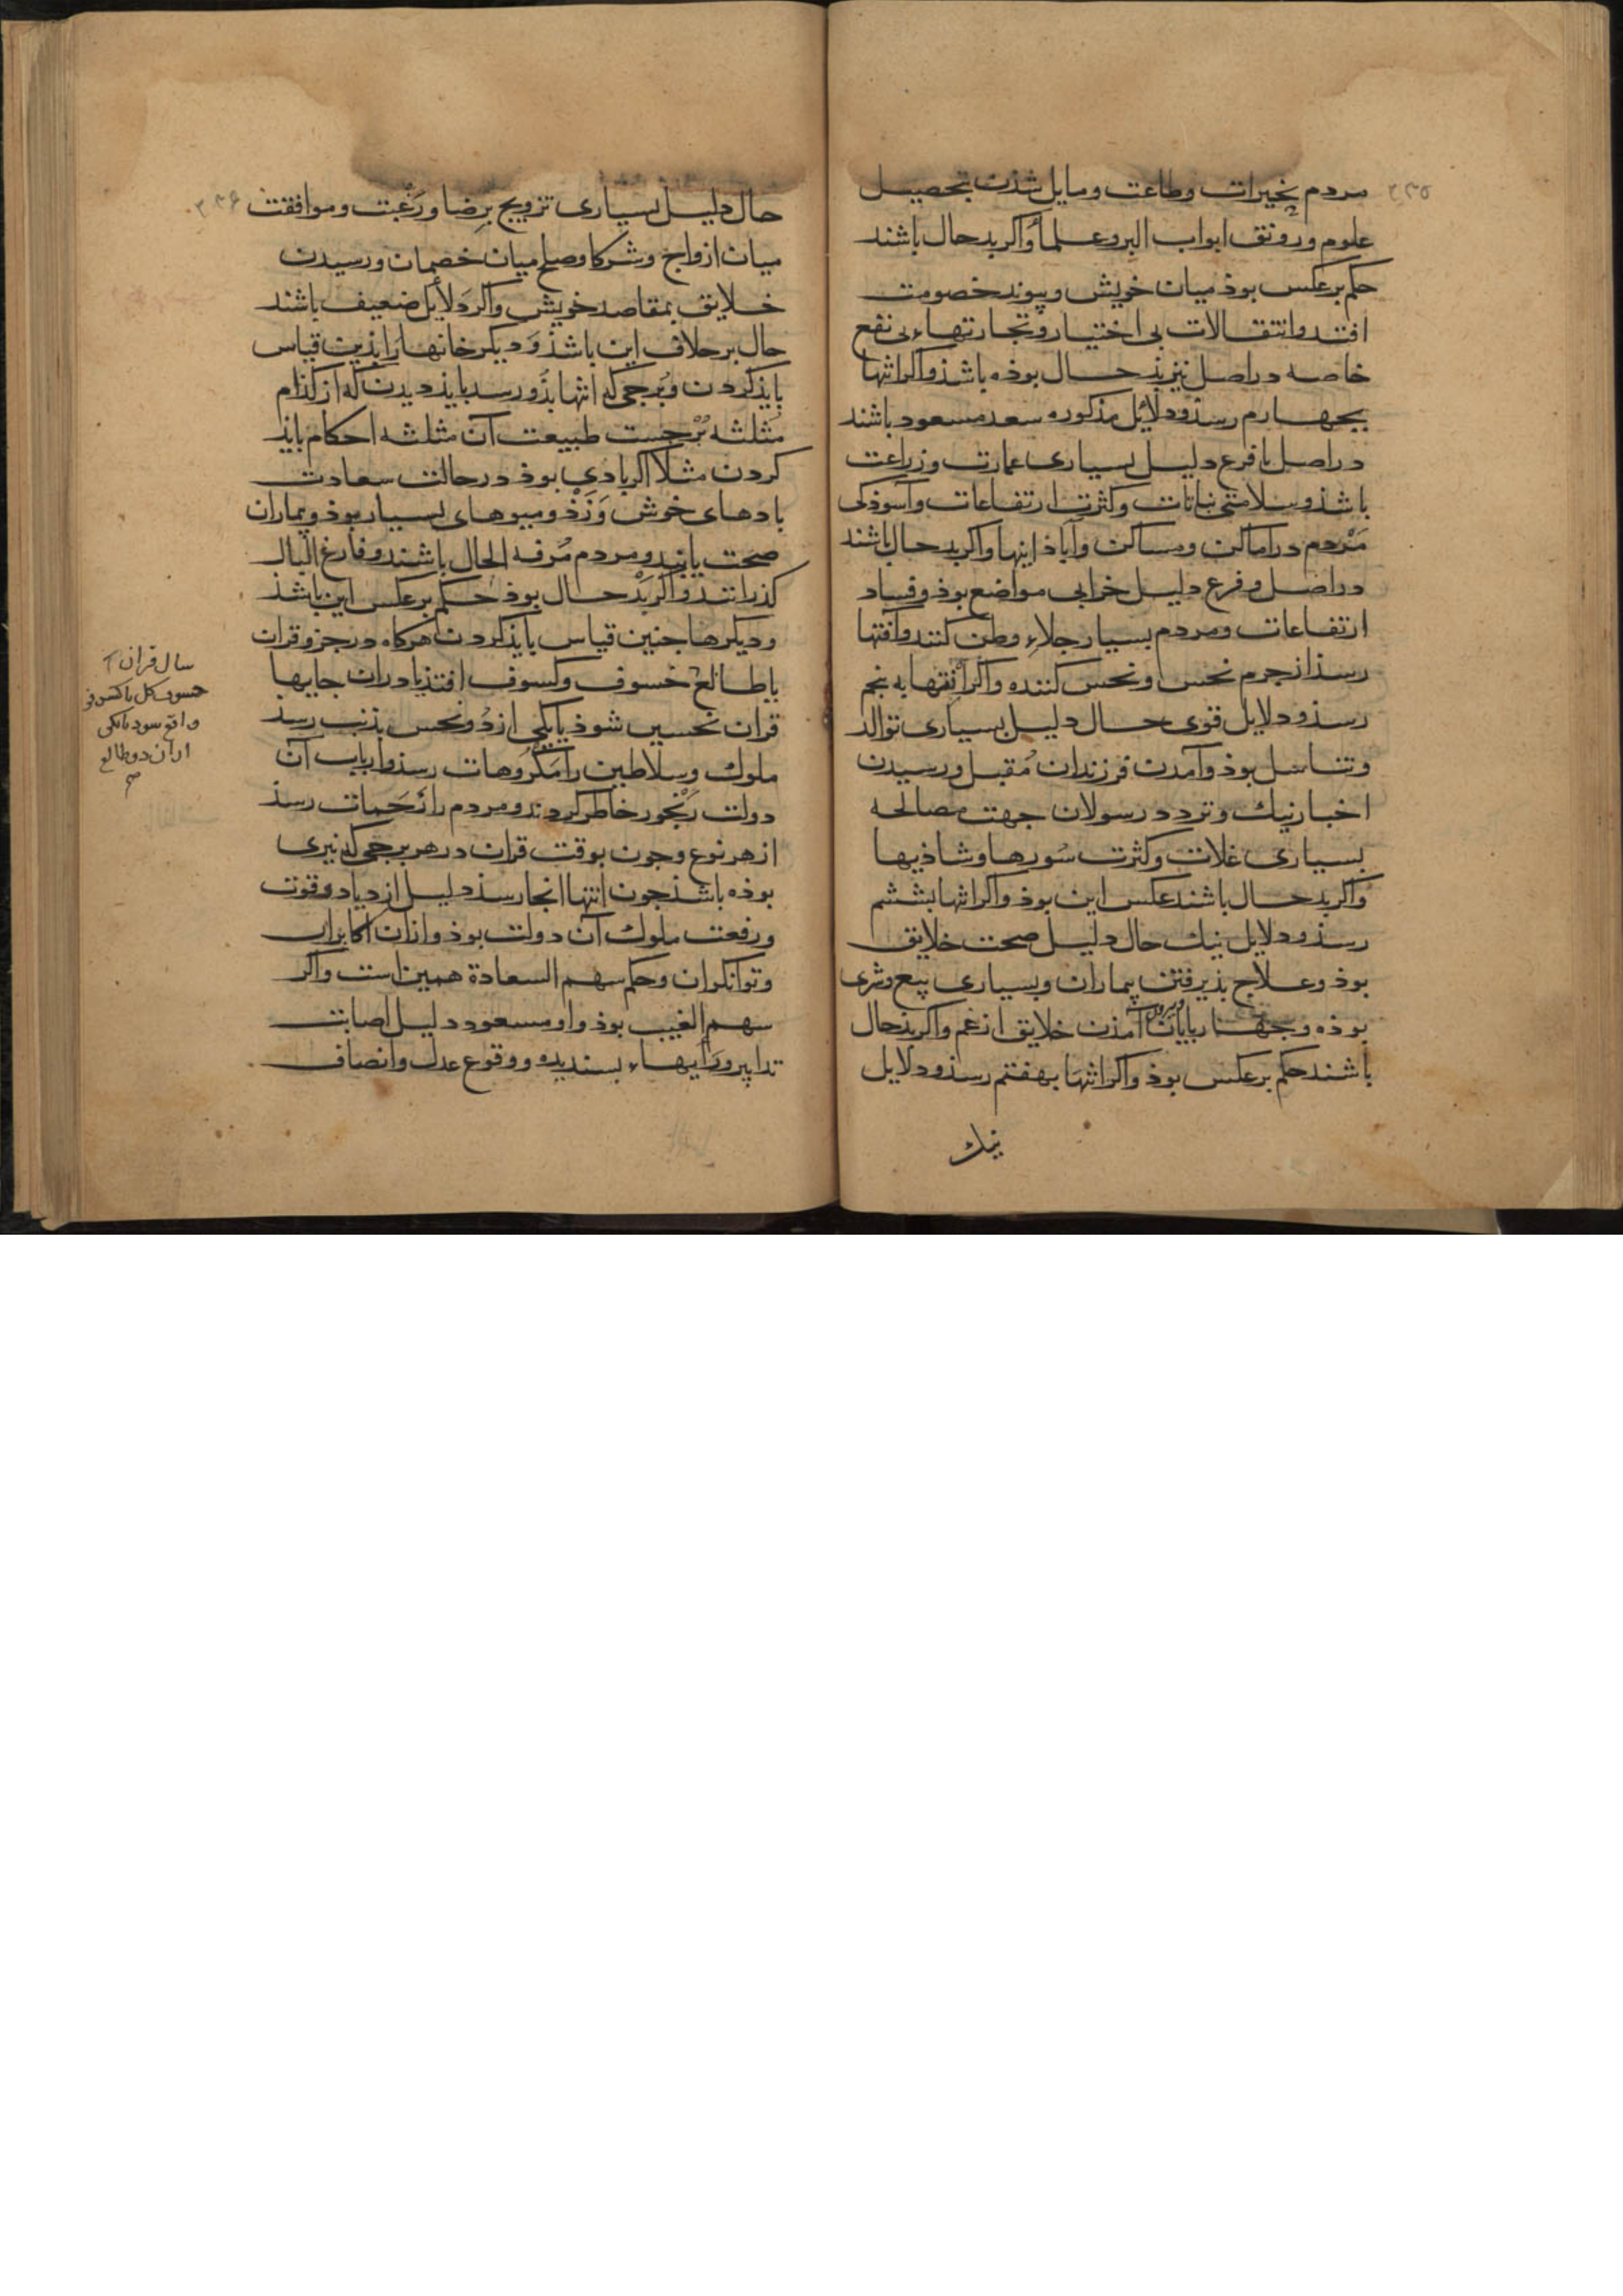 ۳۳۵
مردم بخیرات وطاعت ومایل شذن بتحصیل
علوم ورونق ابواب البر وعلما واکر بدحال باشند
حکم برعکس بوذ میان خویش وپیوند خصومت
افتد وانتقالات بی اختیار وتجارتهاء بی نفع
خاصه در اصل نیز بذ حال بوذه باشذ واکر انتها
بچهارم رسذ ودلایل مذکوره سعد مسعود باشند
در اصل یا فرع دلیل بسیاری عمارت وزراعت
باشذ وسلامتی نباتات وکثرت ارتفاعات واسوذکی
مردم در اماکن ومساکن وآباذانیها واکر بدحال باشند
در اصل وفرع دلیل خرابی مواضع بوذ وفساد
ارتفاعات ومردم بسیار جلاء وطن کنند وآفتها
رسذ از جرم نحس ونحس کننده واکر انتها به پنجم
رسذ ودلایل قوی حال دلیل بسیاری توالد
وتناسل بوذ وآمدن فرزندان مُقبل ورسیدن
اخبار نیك وتردد رسولان جهت مصالحه
بسیاری غلات وکثرت سُورها وشاذیها
واکر بدحال باشند عکس این بوذ واکر انتها بششم
رسذ ودلایل نیك حال دلیل صحت خلایق
بوذ وعلاج بذیرفتن بیماران وبسیاری بیع وشری
بوذه وجهارپایان بیرون آمذن خلایق از غم واکر بذحال
باشند حکم برعکس بوذ واکر انتها بهفتم رسذ ودلایل
نیك
۳۳۶
حال دلیل بسیاری تزویج برِضا ورَغبت وموافقت
میان ازواج وشرکا وصلح میان خصمان ورسیدن
خلایق بمقاصد خویش واکر دَلایل ضعیف باشند
حال برخلاف این باشذ وَدیکر خانها رَا بذین قیاس
بایذ کردن وبُرجی که انتها بذُو رسد بایذ دیدن که از کذام
مُثلثه بُرجست طبیعت آن مثلثه احکام بایذ
کردن مثلا اکر بادی بوذ در حالت سعادت
بادهای خوش وَزَذ ومیوهای بسیار بوذ وبیماران
صحت یابند ومردم مُرفه الحال باشند وفارغ البال
کذرانند واکر بَدْ حال بوذ حکم برعکس این باشذ
ودیکرها جنین قیاس بایذ کردن هرکاه در جزو قران
یا طالع خسوف وکسوف افتذ یا در ان جایها
قران نحسین شوذ یا یکی از دُو نحس بذنب رسذ
ملوك وسلاطین رَا مَکرُوهات رسذ وارباب آن
دولت رَنجور خاطر کردند ومردم را زَحَمات رسذ
از هر نوع وجون بوقت قران در هر برجی که نیری
بوذه باشذ جون انتها انجا رسذ دلیل ازدیاد وقوت
ورفعت ملوك آن دولت بوذ وازان اکابران
وتوانکران وحکم سهم السعادة همین است واکر
سهم الغیب بوذ واو مسعود دلیل اصابت
تدابیر ورَایهاء بسندیده ووقوع عدل وانصاف
سال قران
خسوف کل یا کسوف
واقع سود یا یکی
از ان دو طالع
صح